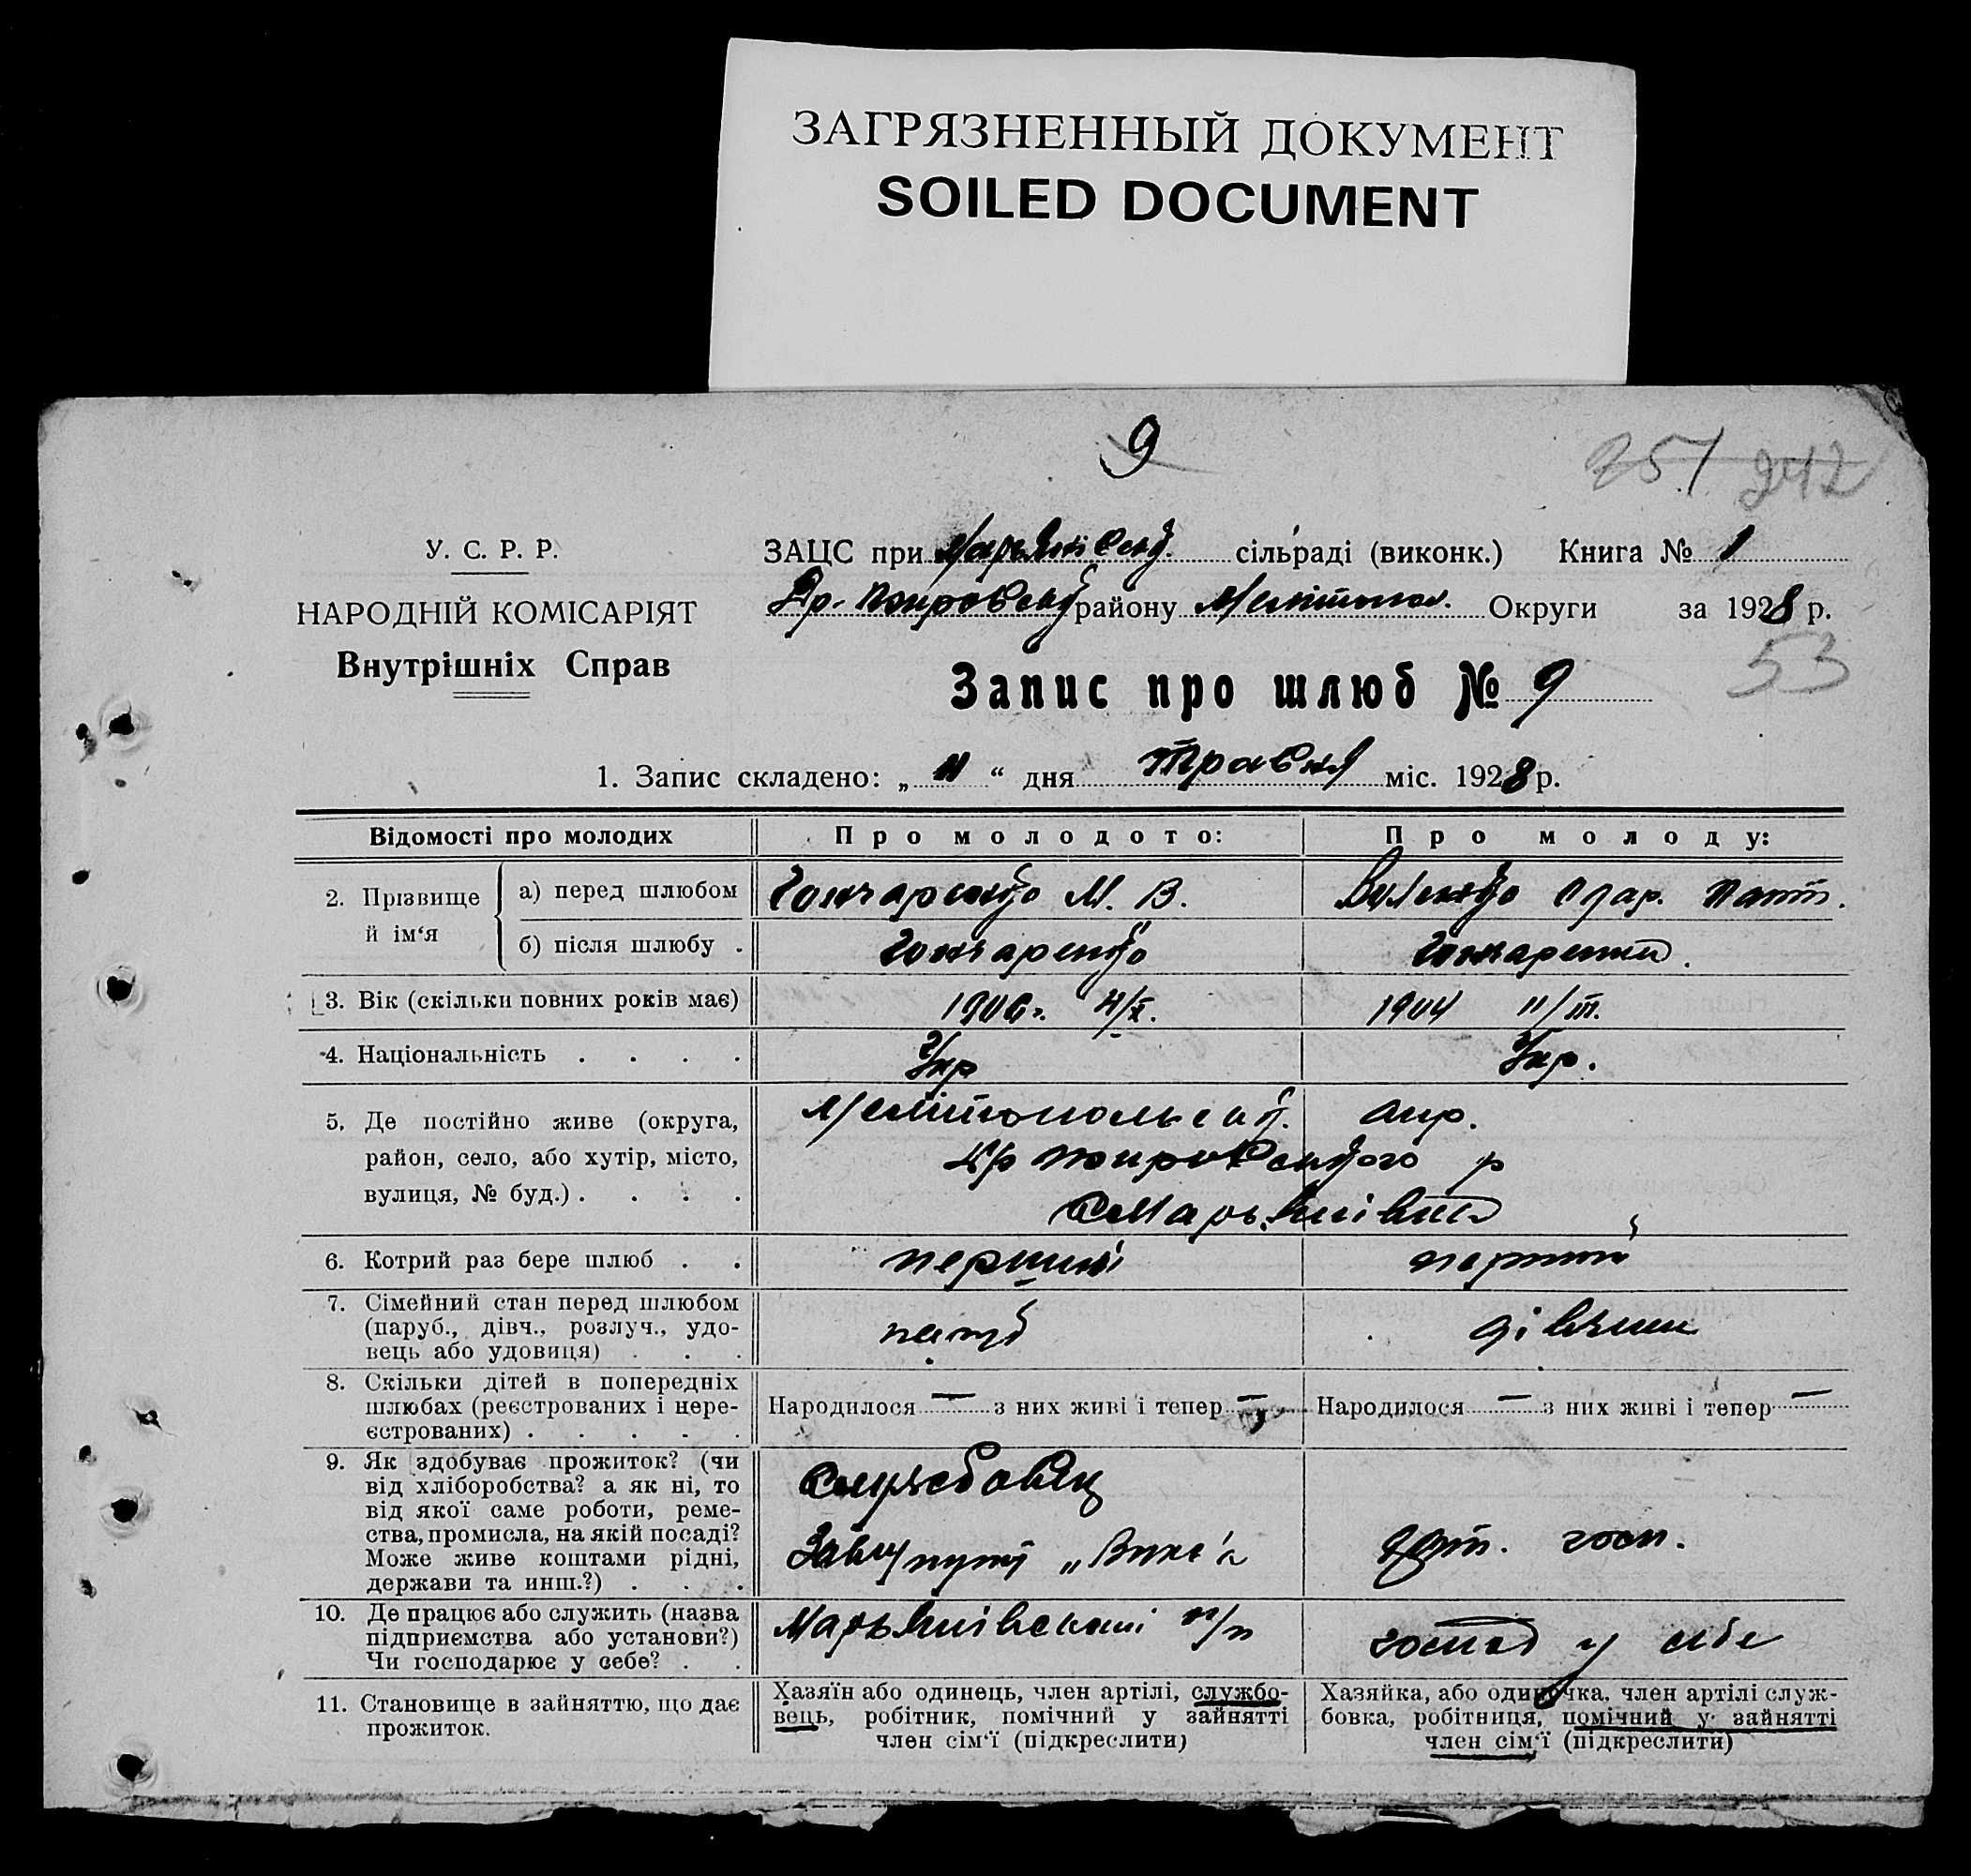 ЗАГРЯЗНЕННЫЙ ДОКУМЕНТ
SOILED DOCUMENT
9
251 242
У. С. Р. Р.
НАРОДНІЙ КОМІСАРІЯТ
Внутрішніх Справ
ЗАЦС при сільраді (виконк.) Книга № 1
району Мелітопол. Округи за 1928 р.
53
Запис про шлюб № 9
1. Запис складено: „ “ дня Травня міс. 1928 р.
Відомості про молодих Про молодого: Про молоду:
2. Прізвище й ім‘я
а) перед шлюбом Гончаренко М. В.
б) після шлюбу . Гончаренко Гончаренко.
3. Вік (скільки повних років має) 1906г. 1904 11/III.
4. Національність . . . . Укр Укр.
5. Де постійно живе (округа, Мелітопольськ. окр.
район, село, або хутір, місто,
вулиця, № буд.) . . . . с Марьянівка
6. Котрий раз бере шлюб . . перший перший
7. Сімейний стан перед шлюбом
(паруб., дівч., розлуч., удо- паруб дівчина
вець або удовиця) . . .
8. Скільки дітей в попередніх
шлюбах (реєстрованих і нере- Народилося — з них живі і тепер — Народилося — з них живі і тепер —
єстрованих) . . . . .
9. Як здобуває прожиток? (чи
від хліборобства? а як ні, то Службовец
від якої саме роботи, реме-
ства, промисла, на якій посаді?
Може живе коштами рідні, госп.
держави та инш.?) . . .
10. Де працює або служить (назва
підприємства або установи?) Марьянівський п/п у себе
Чи господарює у себе? . .
11. Становище в зайняттю, що дає
прожиток.
Хазяїн або одинець, член артілі, службо-
вець, робітник, помічний у зайнятті
член сім‘ї (підкреслити)
Хазяйка, або одиночка, член артілі служ-
бовка, робітниця, помічний у зайнятті
член сім‘ї (підкреслити)